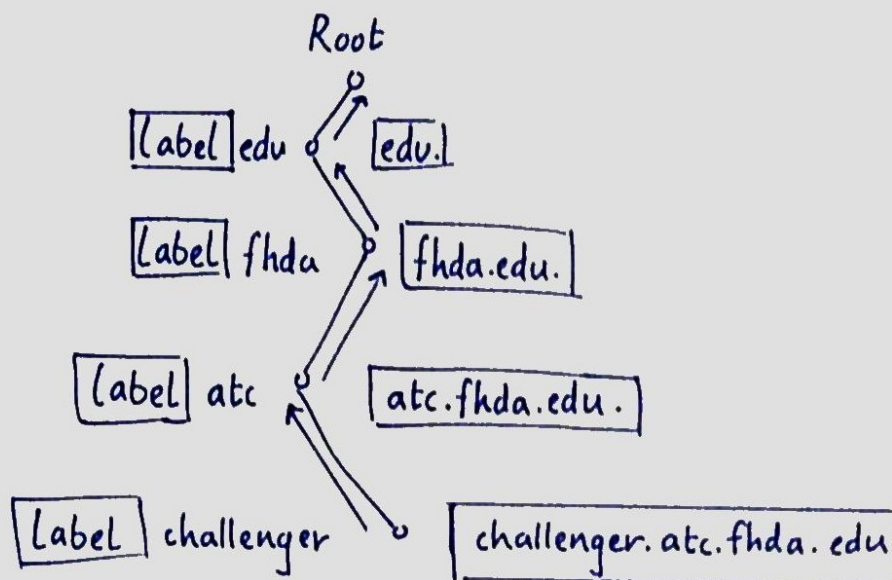 Root
label edu edu.
label fhda fhda.edu.
label atc atc.fhda.edu.
label challenger challenger.atc.fhda.edu